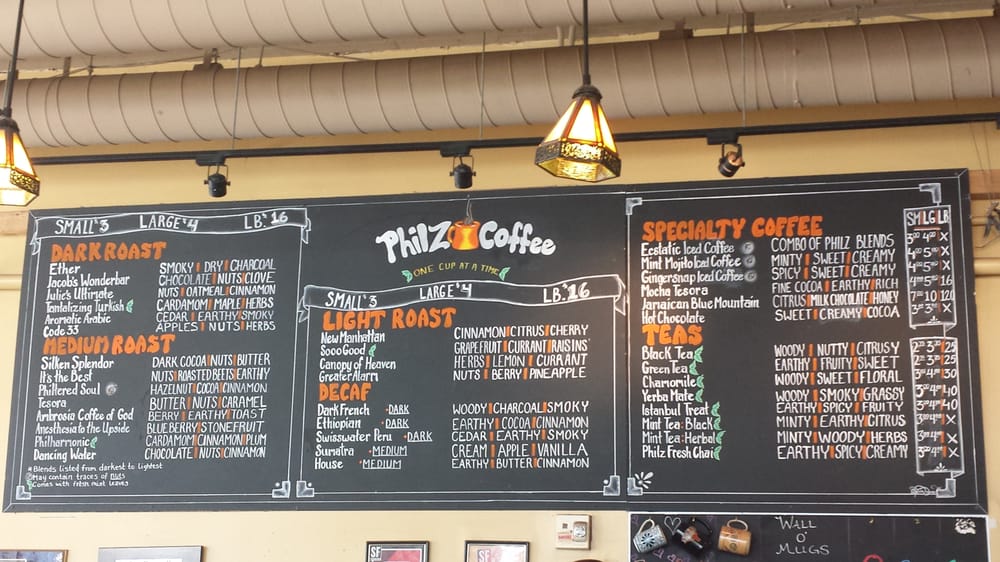 SMALL $3 LARGE $4 LB. $16
DARK ROAST
Ether SMOKY | DRY | CHARCOAL
Jacob's Wonderbar CHOCOLATE | NUTS | CLOVE
Julie's Ultimate NUTS | OATMEAL | CINNAMON
Tantalizing Turkish CARDAMOM | MAPLE | HERBS
Aromatic Arabic CEDAR | EARTHY | SMOKY
Code 33 APPLES | NUTS | HERBS
MEDIUM ROAST
Silken Splendor DARK COCOA | NUTS | BUTTER
It's the Best NUTS | ROASTED BEETS | EARTHY
Philtered Soul HAZELNUT | COCOA | CINNAMON
Tesora BUTTER | NUTS | CARAMEL
Ambrosia Coffee of God BERRY | EARTHY | TOAST
Anesthesia to the Upside BLUEBERRY | STONEFRUIT
Philharmonic CARDAMOM | CINNAMON | PLUM
Dancing Water CHOCOLATE | NUTS | CINNAMON
* Blends listed from darkest to lightest
May contain traces of nuts
Comes with fresh mint leaves
Philz Coffee
ONE CUP AT A TIME
SMALL $3 LARGE $4 LB. $16
LIGHT ROAST
New Manhattan CINNAMON | CITRUS | CHERRY
Sooo Good GRAPEFRUIT | CURRANT | RAISINS
Canopy of Heaven HERBS | LEMON | CURRANT
Greater Alarm NUTS | BERRY | PINEAPPLE
DECAF
Dark French • DARK WOODY | CHARCOAL | SMOKY
Ethiopian • DARK EARTHY | COCOA | CINNAMON
Swisswater Peru • DARK CEDAR | EARTHY | SMOKY
Sumatra • MEDIUM CREAM | APPLE | VANILLA
House • MEDIUM EARTHY | BUTTER | CINNAMON
SPECIALTY COFFEE SM LG LB
Ecstatic Iced Coffee COMBO OF PHILZ BLENDS
Mint Mojito Iced Coffee MINTY | SWEET | CREAMY
Gingersnap Iced Coffee SPICY | SWEET | CREAMY
Mocha Tesora FINE COCOA | EARTHY | RICH
Jamaican Blue Mountain CITRUS | MILK CHOCOLATE | HONEY
Hot Chocolate SWEET | CREAMY | COCOA
TEAS
Black Tea WOODY | NUTTY | CITRUSY
Green Tea EARTHY | FRUITY | SWEET
Chamomile WOODY | SWEET | FLORAL
Yerba Mate WOODY | SMOKY | GRASSY
Istanbul Treat EARTHY | SPICY | FRUITY
Mint Tea: Black MINTY | EARTHY | CITRUS
Mint Tea: Herbal MINTY | WOODY | HERBS
Philz Fresh Chai EARTHY | SPICY | CREAMY
WALL
O'
MUGS
SF
SF